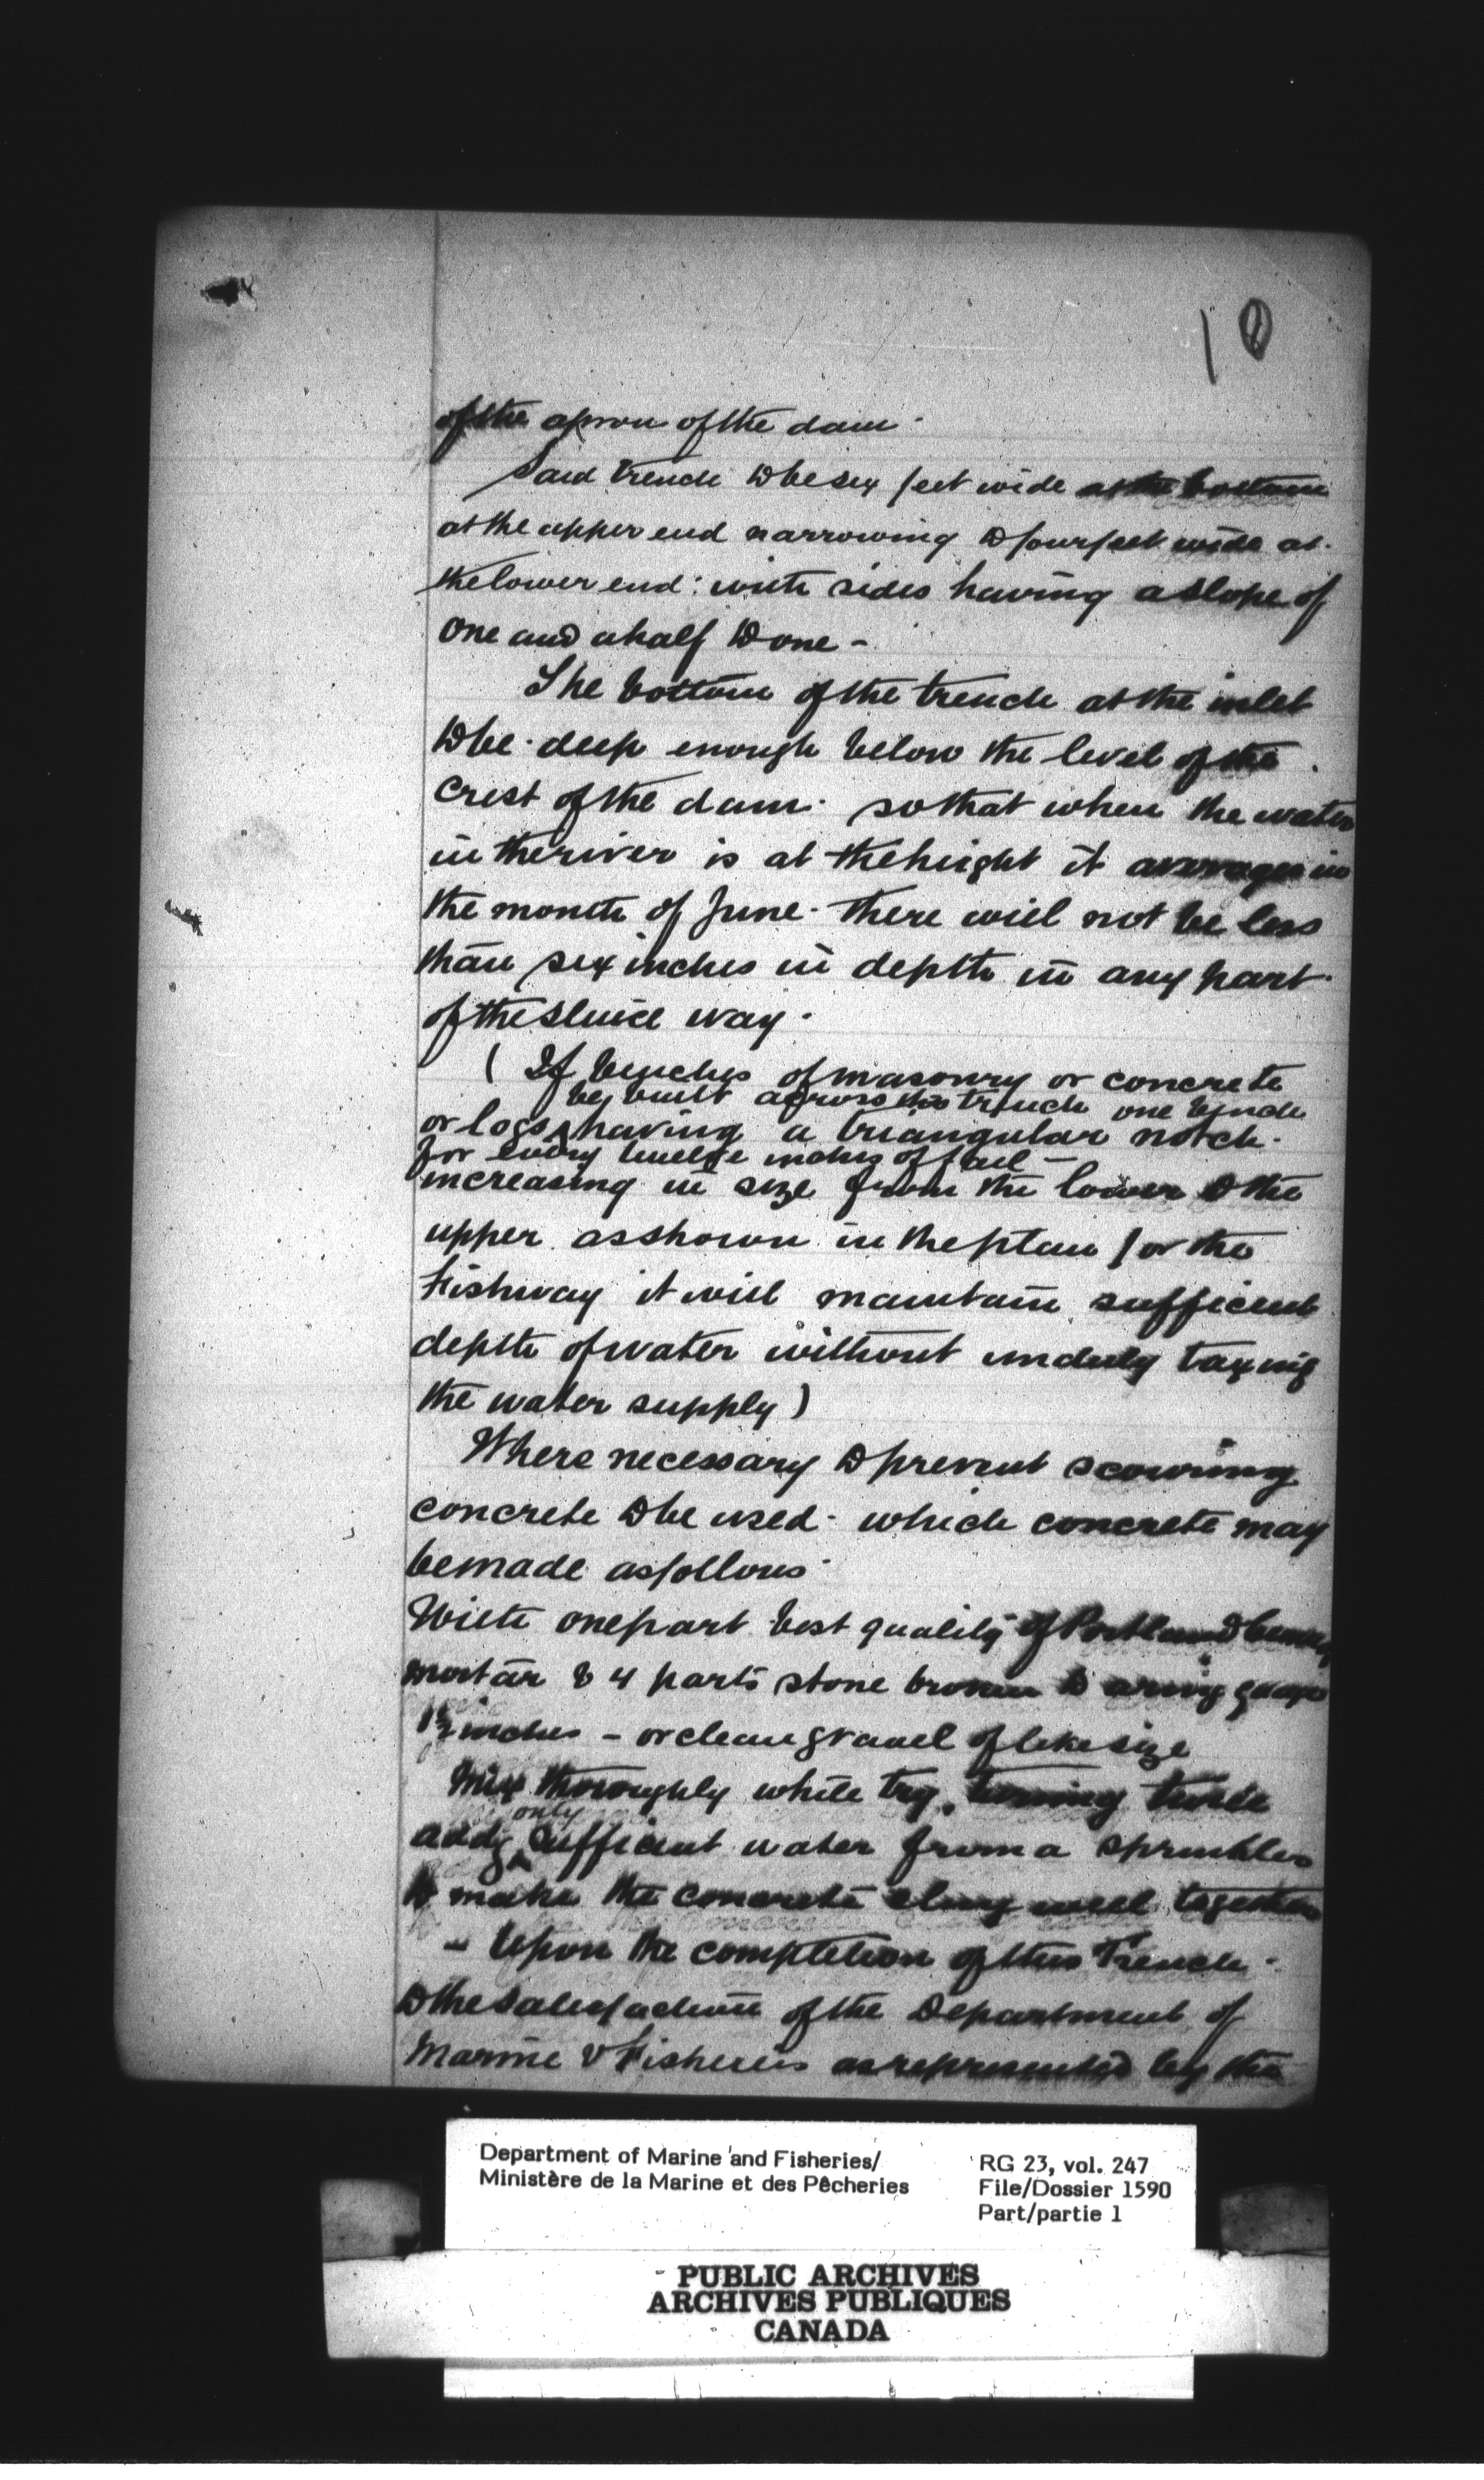 10
of the apron of the dam.
Said trench to be six feet wide at the bottom
at the upper end narrowing to four feet wide at
the lower end: with sides having a slope of
one and a half to one -
The bottom of the trench at the inlet
to be deep enough below the level of the
crest of the dam. so that when the water
in the river is at the height it averages in
the month of June. there will not be less
than six inches in depth in any part
of the sluice way.
( If benches of masonry or concrete
be built across the trench one bench
or logs having a triangular notch.
for every twelve inches of fall -
increasing in size from the lower to the
upper as shown in the plan for the
Fishway it will maintain sufficient
depth of water without unduly taxing
the water supply )
Where necessary to prevent scouring
concrete to be used. which concrete may
be made as follows
With one part best quality of Portland
mortar & 4 parts stone broken to
1½ inches - or clean gravel of like size
Mix thoroughly while dry, turning twice
only
add sufficient water from a sprinkler
to make the concrete cling well together
- Upon the completion of this Trench -
to the satisfaction of the Department of
Marine & Fisheries as represented by the
Department of Marine and Fisheries/
Ministère de la Marine et des Pêcheries
RG 23, vol. 247
File/Dossier 1590
Part/partie 1
PUBLIC ARCHIVES
ARCHIVES PUBLIQUES
CANADA